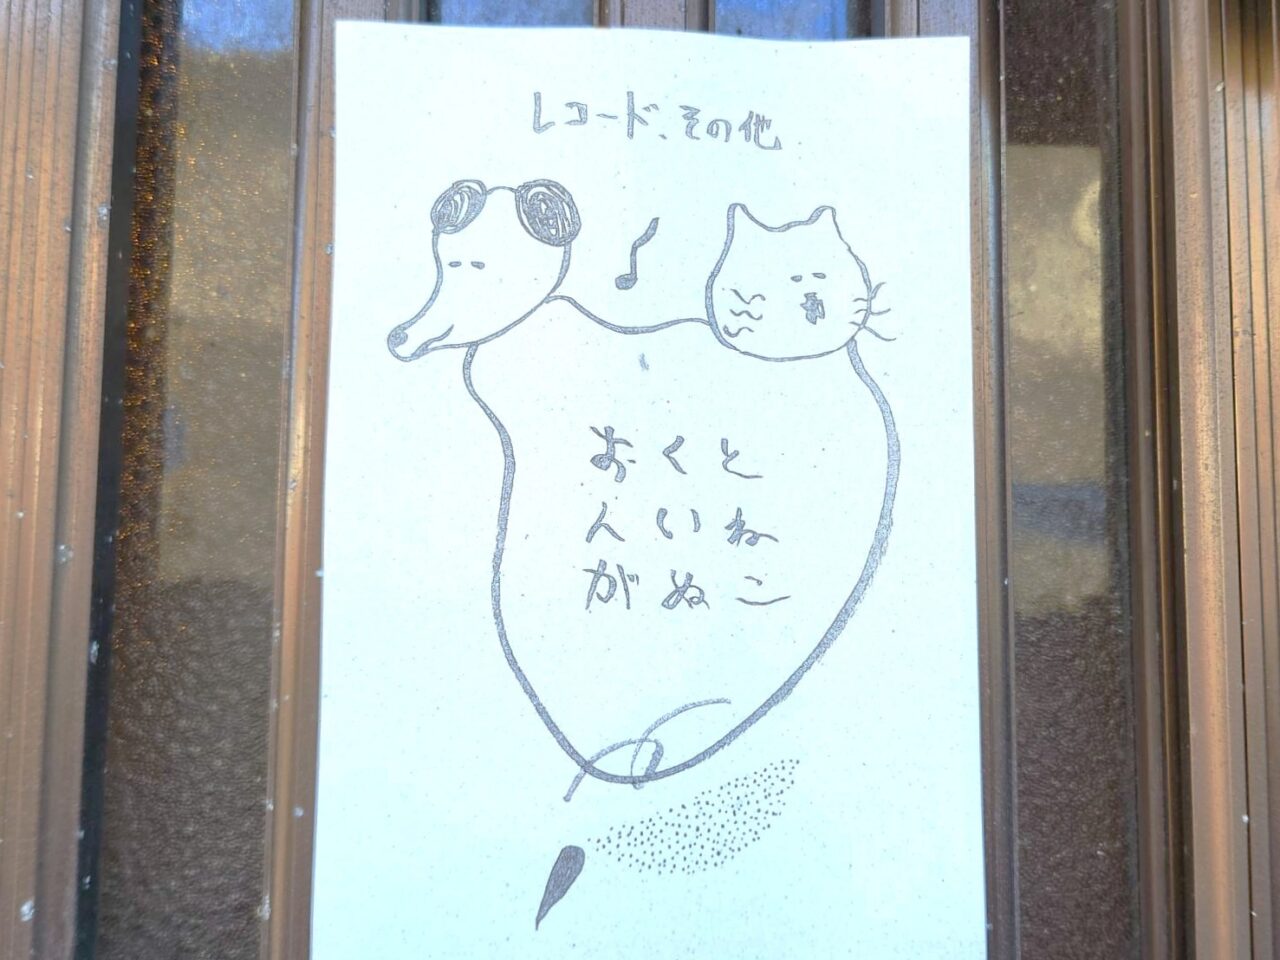 レコード、その他
おんが
くいぬ
とねこ